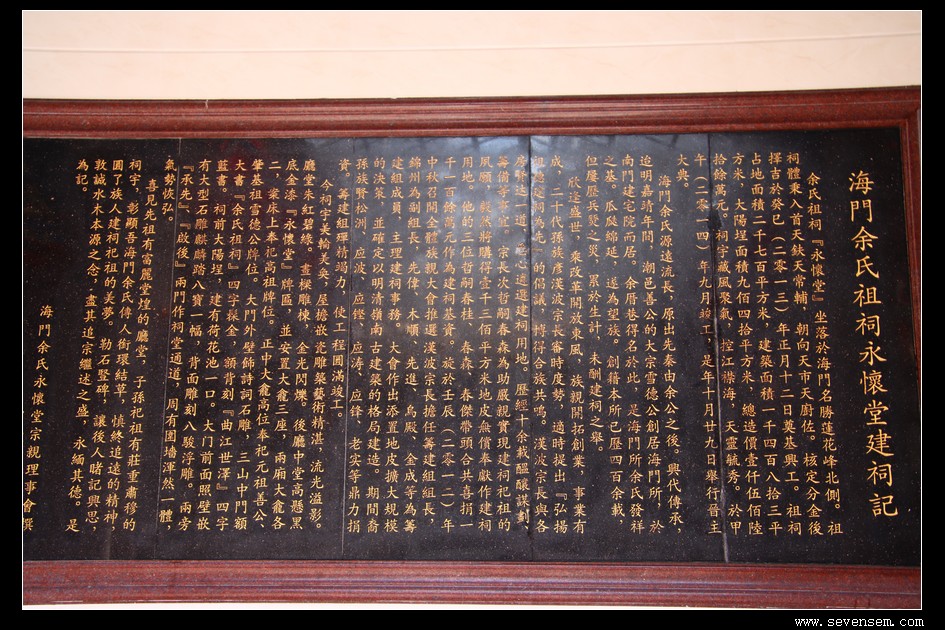 海門余氏祖祠永懷堂建祠記
余氏祖祠『永懷堂』坐落於海門名勝蓮花峰北側。祖
祠體秉八首天鈇天常輔，朝向天市天廚佐。核定分金後
擇吉於癸巳（二零一三）年正月十二日奠基興工。祖祠
占地面積二千七百平方米，建築面積一千四百八拾三平
方米，大陽埕面積九佰四拾平方米，總造價壹仟伍佰陸
拾餘萬元。祠宇藏風聚氣，控江襟海，天靈毓秀。於甲
午（二零一四）年九月竣工，是年十月廿九日舉行晉主
大典。
海門余氏源遠流長，原出先秦由余公之後。興代傳承，
追明嘉靖年間，潮邑善公的大宗雪德公創居海門所，於
南門建宅院而居。余厝巷得名於此，是海門所余氏發祥
之基。瓜陵綿延，遂為望族。創籍本所已歷四百余載，
但屢歷兵燹之災，累於生計，未酬建祠之舉。
欣逢盛世，乘改革開放東風，族親開拓創業，事業有
成。二十代孫族彥漢波宗長審時度勢，適時提出『弘揚
祖德建祠為先』的倡議，博得合族共鳴。漢波宗長與各
房賢達志一道，精心遴選建祠用地。歷經十余載醞釀謀劃，
籌備等事宜，宗長次哲嗣春森為助嚴親實現建祠祀祖的
夙願，毅然將購得壹千三佰平方米地皮無償奉獻作建祠
用地。他的三位哲嗣春桂、春森、春傑帶頭合共喜捐一
千一百餘萬元作為建祠基資。族於壬辰（二零一二）年
中秋召開全體族親大會推選漢波宗長擔任籌建組組長，
錦州為副組長，先偉、木順、先進、烏殿、金成等為籌
建組成員，主理建祠事務。大會作出添置地皮擴大規模
的決策，並確定以明清嶺南古建築的格局建造。期間裔
孫族賢松洲、應波、應鏗、應濤、應鋒、老实等鼎力捐
資。籌建組殫精竭力，使工程圓滿竣工。
今祠宇美輪美奂，屋檐嵌瓷雕築藝術精湛，流光溢影。
廳堂朱紅碧綠，畫樑雕棟，金光閃爍。後廳中堂高懸黑
底金漆『永懷堂』牌區，並安置大龕三座，兩廂大龕各
二，業床上奉祀高祖牌位。正中大龕高位奉祀元祖善公、
肇基祖雪德公牌位。大門外壁飾詩詞石雕，三山中門額
大書『余氏祖祠』四字揉金，額背刻『曲江世澤』四字
藍書。祠前大陽埕，建有荷花池一口。大门前面照壁嵌
有大型石雕麒麟踏八寶一幅，背面雕刻八駿浮雕。兩旁
『承先』、『啟後』兩門作祠堂通道，周有圍墻渾然一體，
氣勢恢弘。
喜見先祖有富麗堂煌的廳堂，子孫祀祖有莊重肅穆的
祠宇，彰顯吾海門余氏傳人銜環結草，慎終追遠的精神，
圓了族人建祠祀祖的美夢。勒石竪碑，讓後人睹記興思，
敦誠水木本源之念，盡其追宗繼述之盛，永緬其德。是
為記。
海門余氏永懷堂宗親理事會撰
www.sevensem.com